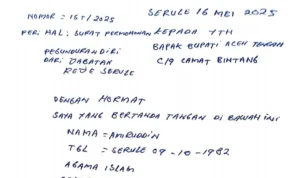 SERULE 16 MEI 2025
NOMOR = 15T/2025
PERI HAL; SURAT PERMOHONAN KEPADA YTH
PEGUNDURAN DIRI BAPAK BUPATI ACEH TENGAH
DARI JABATAN C/Q CAMAT BINTANG
REJE SERULE
DENGAN HORMAT
SAYA YANG BERTANDA TANGAN DI BAWAH INI
NAMA = AMIRUDDIN
TGL = SERULE 09-10-1982
AGAMA ISLAM